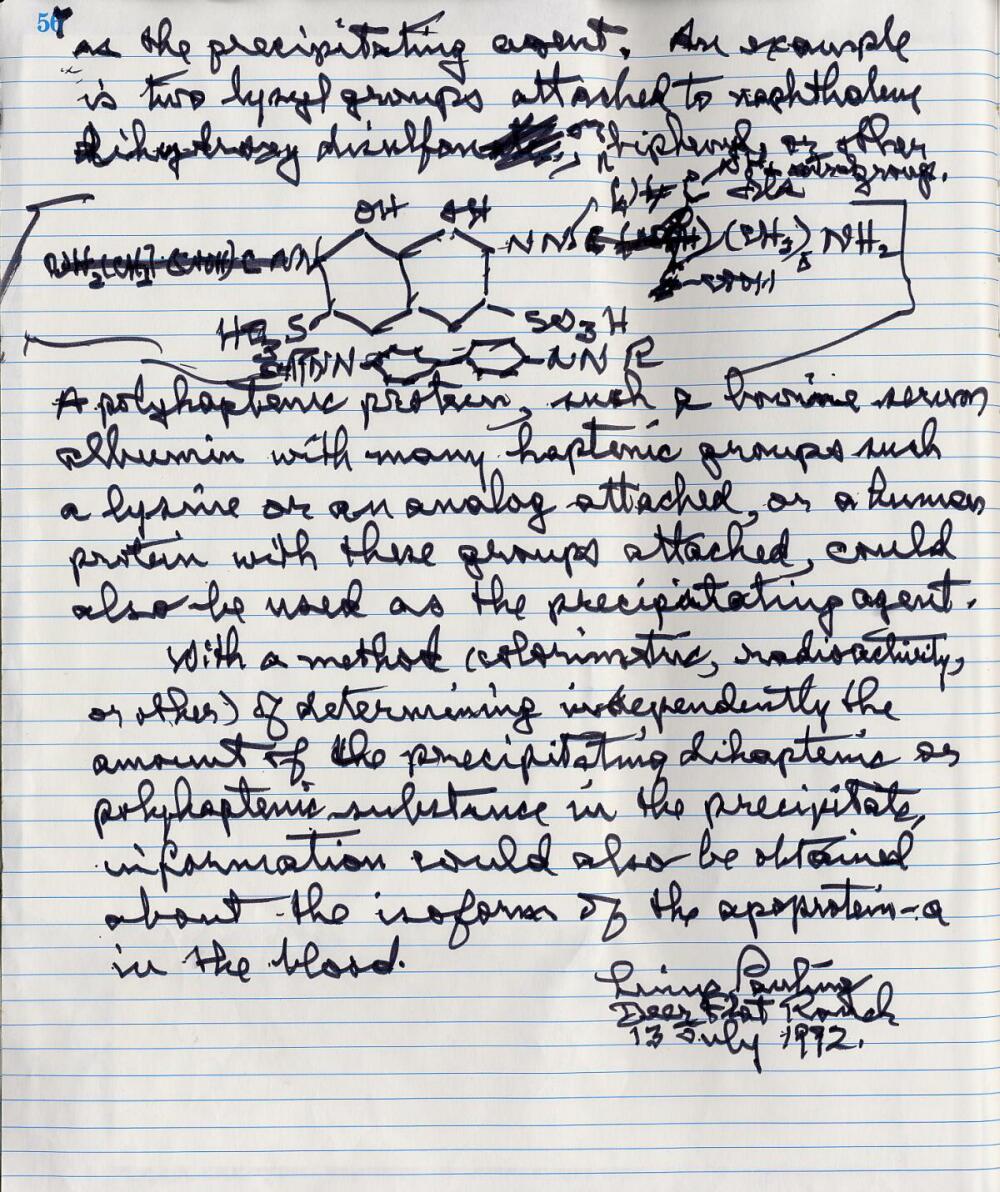 56
as the precipitating agent. An example
is two lysyl groups attached to naphthalene
dihydroxy disulfon or biphenyl, or other
groups.
OH OH
NN (CH2)5 NH2
HO3S SO3H
NN NN R
A polyhaptenic protein, such a bovine serum
albumin with many haptenic groups such
a lysine or an analog attached, or a human
protein with these groups attached, could
also be used as the precipitating agent.
With a method (colorimetric, radioactivity,
or other) of determining independently the
amount of the precipitating dihaptenic or
polyhaptenic substance in the precipitate,
information could also be obtained
about the isoforms of the apoprotein-a
in the blood.
Linus Pauling
Deer Flat Ranch
13 July 1992.